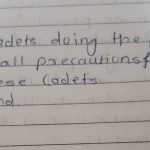 adets doing the
all precautions f
ese Cadets
nd